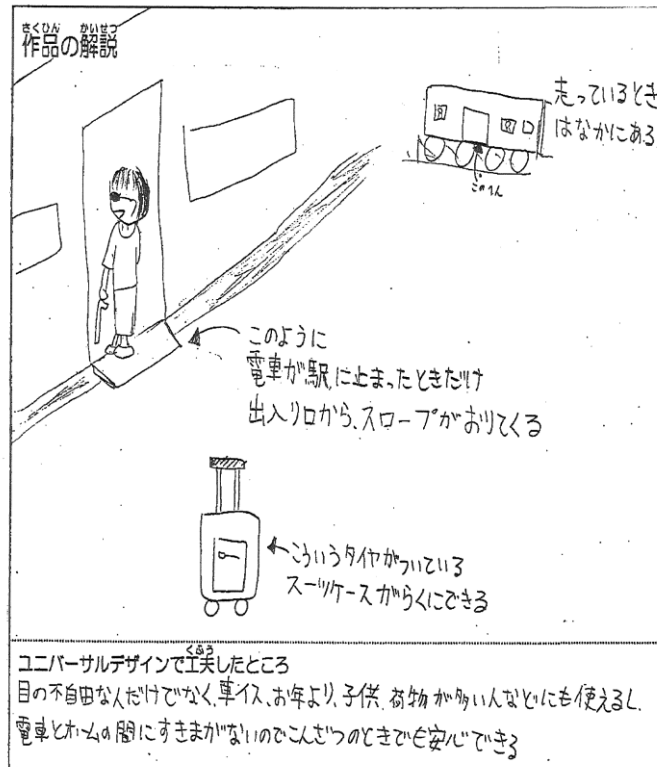 さくひん かいせつ
作品の解説
走っているとき
はなかにある
このへん
このように
電車が駅に止まったときだけ
出入り口から、スロープがおりてくる
こういうタイヤがついている
スーツケースがらくにできる
くふう
ユニバーサルデザインで工夫したところ
目の不自由なんだけでなく、車イス、お年より、子供、荷物が多い人などにも使えるし、
電車とホームの間にすきまがないのでこんざつのときでも安心できる